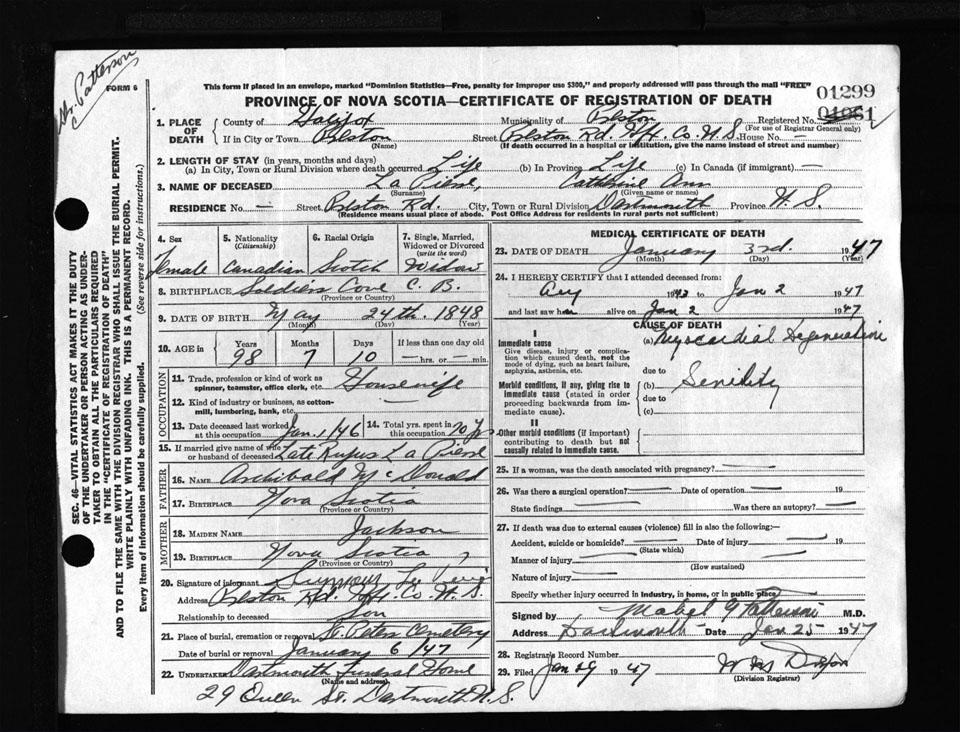 Dr. Patterson
FORM 6
This form if placed in an envelope, marked "Dominion Statistics—Free, penalty for improper use $300," and properly addressed will pass through the mail "FREE"
PROVINCE OF NOVA SCOTIA—CERTIFICATE OF REGISTRATION OF DEATH
01299
1. PLACE OF DEATH
County of Halifax Municipality of Preston Registered No.
(For use of Registrar General only)
If in City or Town Preston (Name) Street Preston Rd. Hfx. Co. N.S. House No. —
(If death occurred in a hospital or institution, give the name instead of street and number)
2. LENGTH OF STAY (in years, months and days)
(a) In City, Town or Rural Division where death occurred Life (b) In Province Life (c) In Canada (if immigrant) —
3. NAME OF DECEASED La Pierre, (Surname) Catherine Ann (Given name or names)
RESIDENCE No. — Street Preston Rd. City, Town or Rural Division Dartmouth Province N.S.
(Residence means usual place of abode. Post Office Address for residents in rural parts not sufficient)
4. Sex Female
5. Nationality (Citizenship) Canadian
6. Racial Origin Scotch
7. Single, Married, Widowed or Divorced (write the word) Widow
8. BIRTHPLACE Soldiers Cove C.B.
(Province or Country)
9. DATE OF BIRTH May 24th. 1848
(Month) (Day) (Year)
10. AGE in Years 98 Months 7 Days 10 If less than one day old —hrs. or —min.
OCCUPATION
11. Trade, profession or kind of work as spinner, teamster, office clerk, etc. Housewife
12. Kind of industry or business, as cotton-mill, lumbering, bank, etc.
13. Date deceased last worked at this occupation Jan. 1/46
14. Total yrs. spent in this occupation 70 Yrs
15. If married give name of wife or husband of deceased Late Rufus La Pierre
FATHER
16. NAME Archibald McDonald
17. BIRTHPLACE Nova Scotia
(Province or Country)
MOTHER
18. MAIDEN NAME Jackson
19. BIRTHPLACE Nova Scotia
(Province or Country)
20. Signature of informant
Address Preston Rd. Hfx. Co. N.S.
Relationship to deceased Son
21. Place of burial, cremation or removal St. Peters Cemetery
Date of burial or removal January 6/47
22. UNDERTAKER Dartmouth Funeral Home
(Name and address)
29 Queen St. Dartmouth N.S.
MEDICAL CERTIFICATE OF DEATH
23. DATE OF DEATH January 3rd. 1947
(Month) (Day) (Year)
24. I HEREBY CERTIFY that I attended deceased from:
Aug 1943 to Jan 2 1947
and last saw her alive on Jan 2 1947
CAUSE OF DEATH
I
Immediate cause
Give disease, injury or complication which caused death, not the mode of dying, such as heart failure, asphyxia, asthenia, etc.
(a) Myocardial Degeneration
due to
Morbid conditions, if any, giving rise to immediate cause (stated in order proceeding backwards from immediate cause).
(b) Senility
due to
(c)
II
Other morbid conditions (if important) contributing to death but not causally related to immediate cause.
25. If a woman, was the death associated with pregnancy? —
26. Was there a surgical operation? — Date of operation — 19
State findings — Was there an autopsy? —
27. If death was due to external causes (violence) fill in also the following:—
Accident, suicide or homicide? — Date of injury — 19
(State which)
Manner of injury —
(How sustained)
Nature of injury —
Specify whether injury occurred in industry, in home, or in public place —
Signed by Mabel G Patterson M.D.
Address Dartmouth Date Jan 25 1947
28. Registrar's Record Number
29. Filed Jan 29 1947
(Division Registrar)
SEC. 46—VITAL STATISTICS ACT MAKES IT THE DUTY OF THE UNDERTAKER OR PERSON ACTING AS UNDERTAKER TO OBTAIN ALL THE PARTICULARS REQUIRED IN THE "CERTIFICATE OF REGISTRATION OF DEATH" AND TO FILE THE SAME WITH THE DIVISION REGISTRAR WHO SHALL ISSUE THE BURIAL PERMIT.
WRITE PLAINLY WITH UNFADING INK. THIS IS A PERMANENT RECORD.
Every item of information should be carefully supplied. (See reverse side for instructions.)